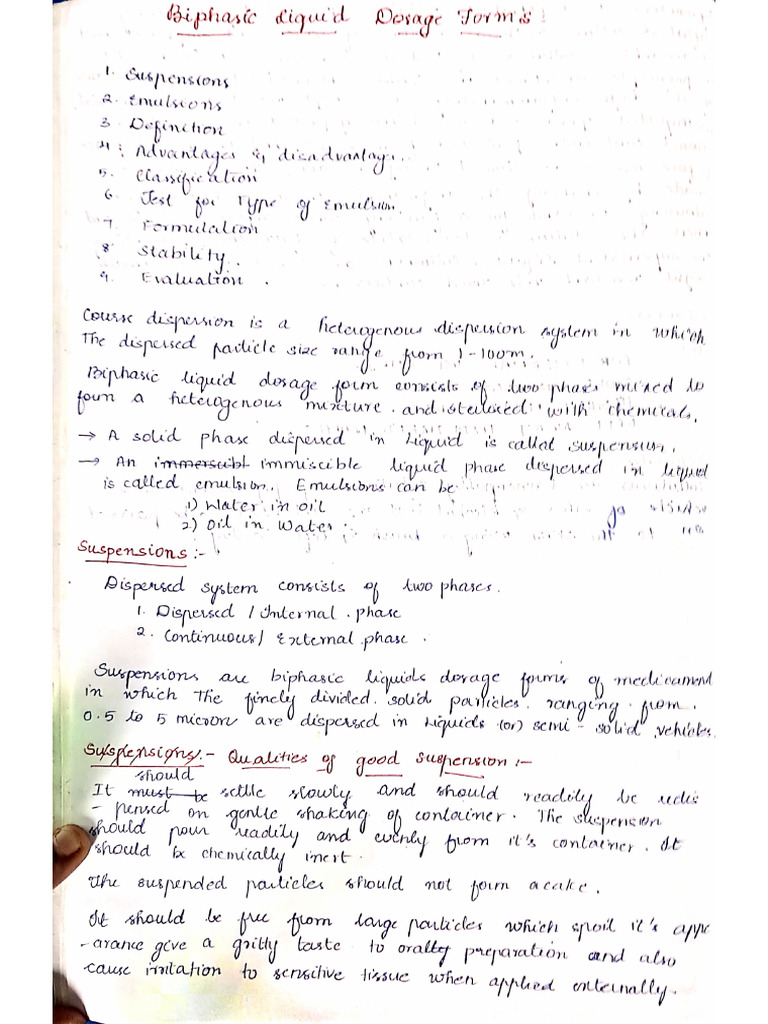 Biphasic Liquid Dosage Forms
1. Suspensions
2. Emulsions
3 Definition
4: Advantages & disadvantages.
5. Classification
6 Test for Type of Emulsion
7 Formulation
8 Stability.
9. Evaluation.
Course dispersion is a heterogenous dispersion system in which
The dispersed particle size range from 1-100m.
Biphasic liquid dosage form consists of two phases mixed to
form a heterogenous mixture and with chemicals.
→ A solid phase dispersed in liquid is called suspension.
→ An immerscibl immiscible liquid phase dispersed in liquid
is called emulsion. Emulsions can be
1) Water in oil
2) Oil in Water.
Suspensions:-
Dispersed system consists of two phases.
1. Dispersed / Internal phase
2. Continuous / External phase.
Suspensions are biphasic liquids dosage forms of medicament
in which the finely divided solid particles ranging from
0.5 to 5 micron are dispersed in liquids (or) semi-solid vehicles.
Suspensions:- Qualities of good suspension:-
should
It must be settle slowly and should readily be redis
-persed on gentle shaking of container. The suspension
should pour readily and evenly from it's container. It
should be chemically inert.
The suspended particles should not form a cake.
It should be free from large particles which spoil it's appe
-arance give a gritty taste to orally preparation and also
cause irritation to sensitive tissue when applied externally.